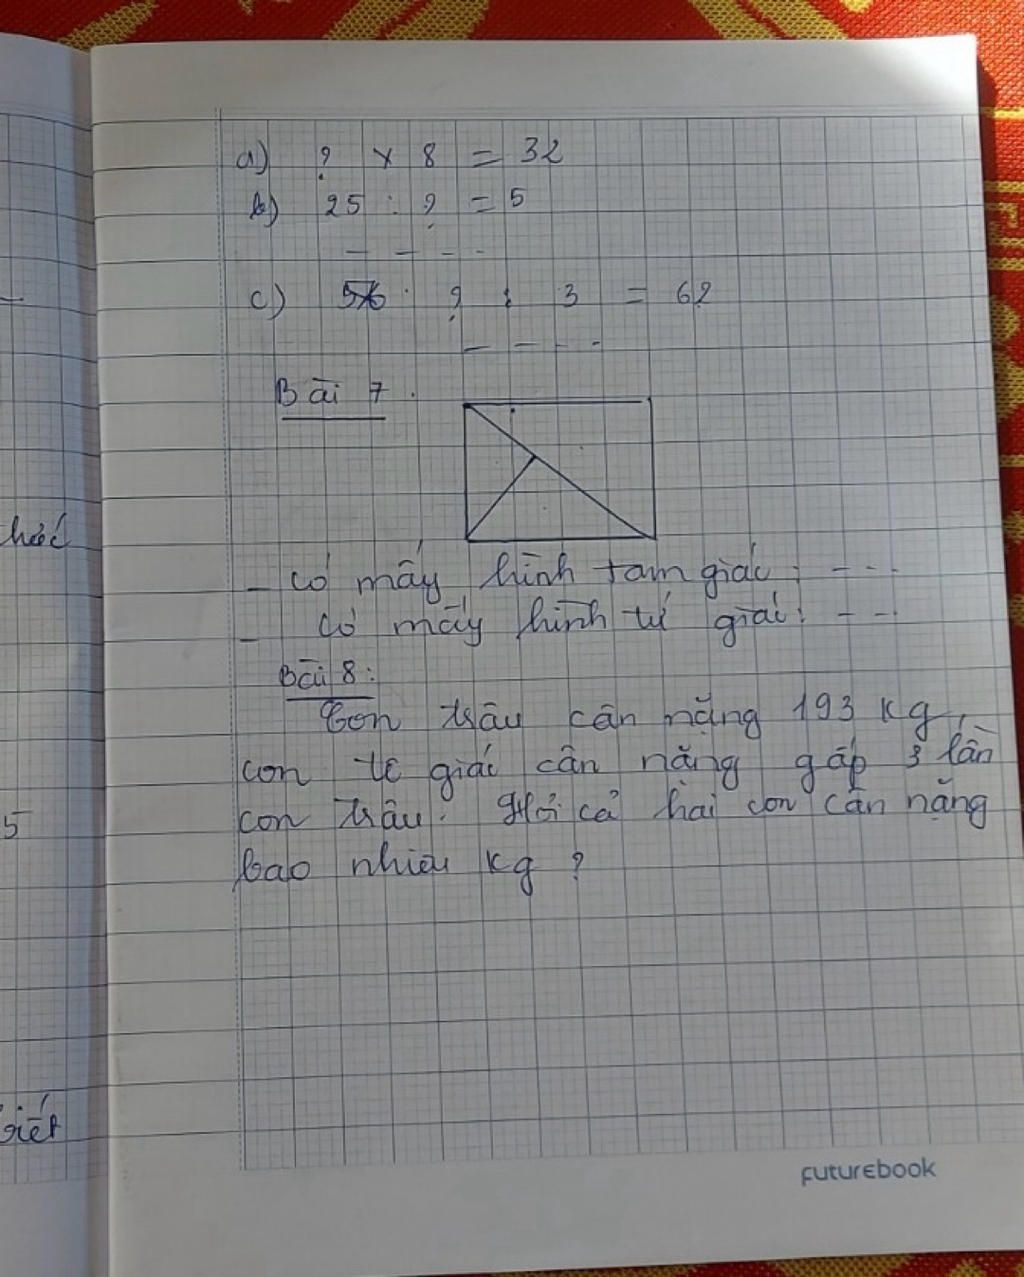 a) ? x 8 = 32
b) 25 : ? = 5
c) ? : 3 = 62
Bài 7.
- Có mấy hình tam giác : - - -
- Có mấy hình tứ giác : - - -
Bài 8:
Con trâu cân nặng 193 kg,
con tê giác cân nặng gấp 3 lần
con trâu. Hỏi cả hai con cân nặng
bao nhiêu kg ?
5
viết
FUTUREBOOK